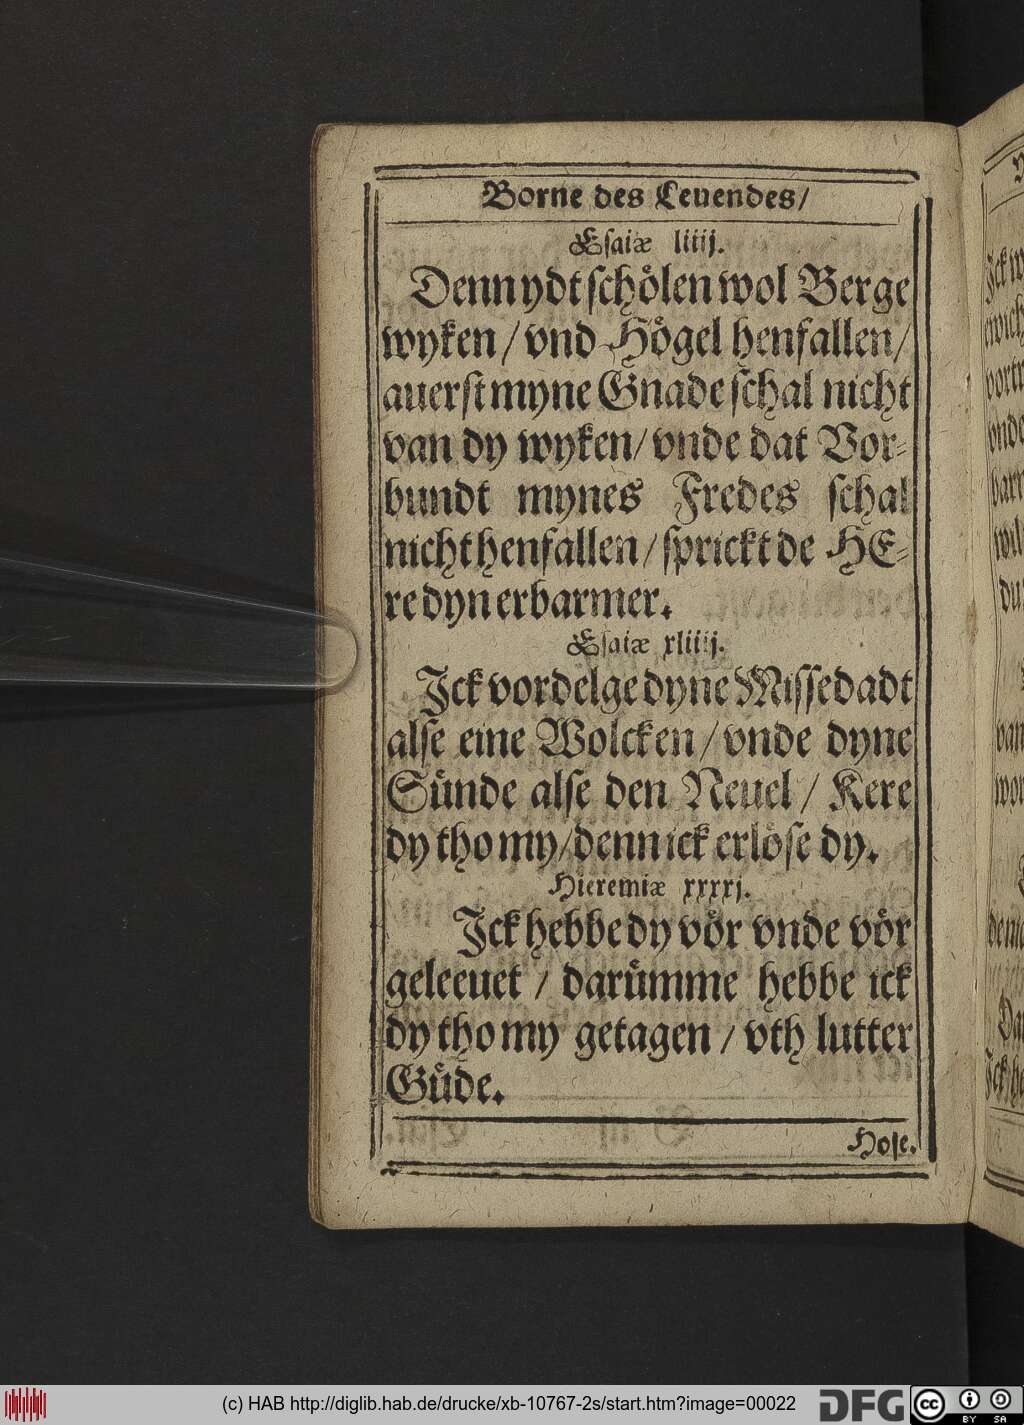 Borne des Leuendes/
Esaiæ liiij.
Denn ydt schoͤlen wol Berge
wyken / vnd Hoͤgel henfallen /
auerst myne Gnade schal nicht
van dy wyken / vnde dat Vor-
bundt mynes Fredes schal
nicht henfallen / sprickt de HE-
re dyn erbarmer.
Esaiæ xliiij.
Jck vordelge dyne Missedadt
alse eine Wolcken / vnde dyne
Suͤnde alse den Neuel / Kere
dy tho my / denn ick erloͤse dy.
Hieremiæ xxxxj.
Jck hebbe dy voͤr vnde voͤr
geleeuet / daruͤmme hebbe ick
dy tho my getagen / vth lutter
Guͤde.
Hose.
(c) HAB http://diglib.hab.de/drucke/xb-10767-2s/start.htm?image=00022
DFG
cc
BY SA